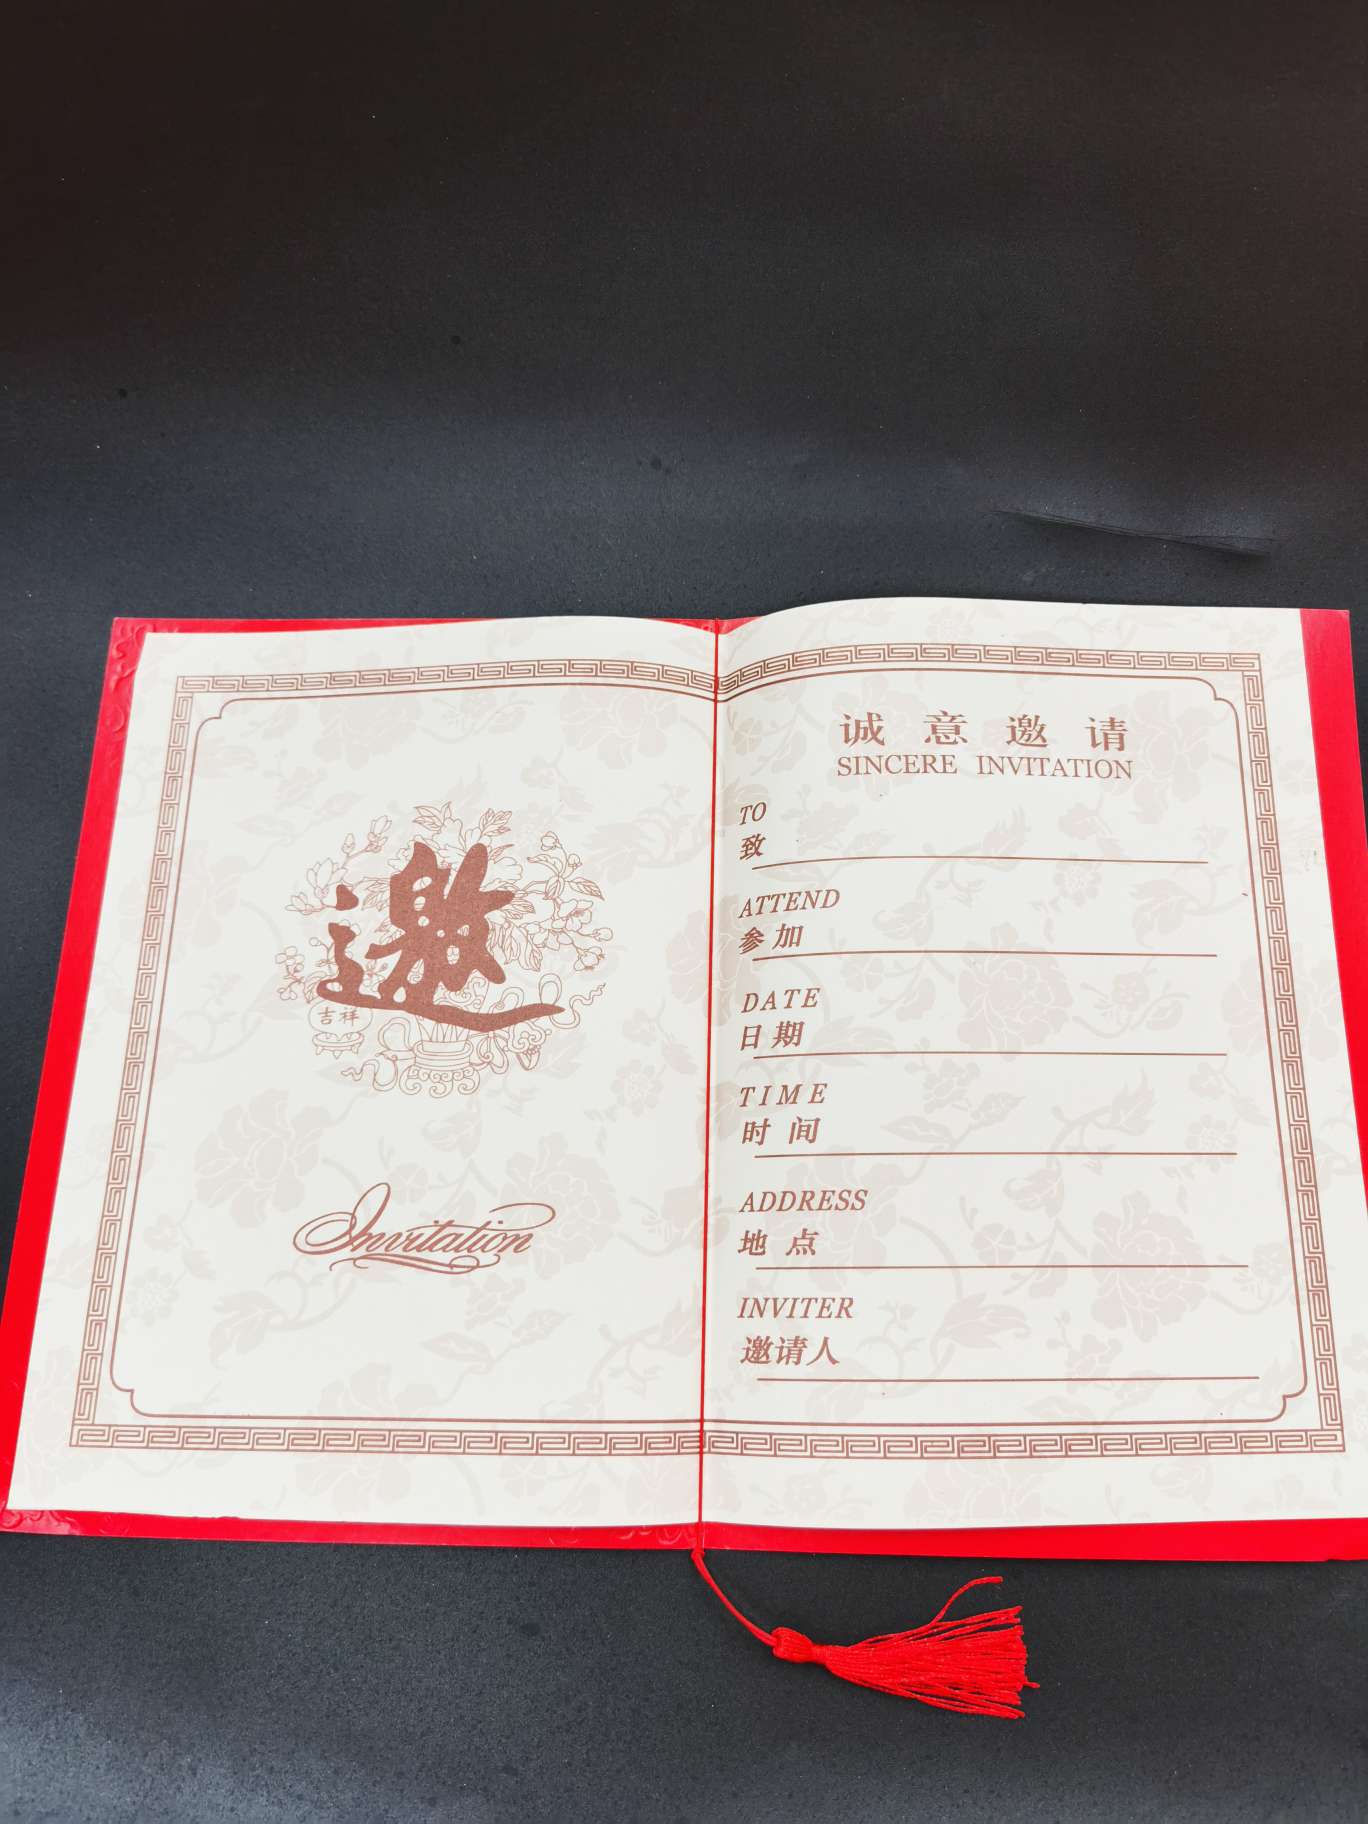 邀
吉祥
Invitation
诚意邀请
SINCERE INVITATION
TO
致
ATTEND
参加
DATE
日期
TIME
时间
ADDRESS
地点
INVITER
邀请人